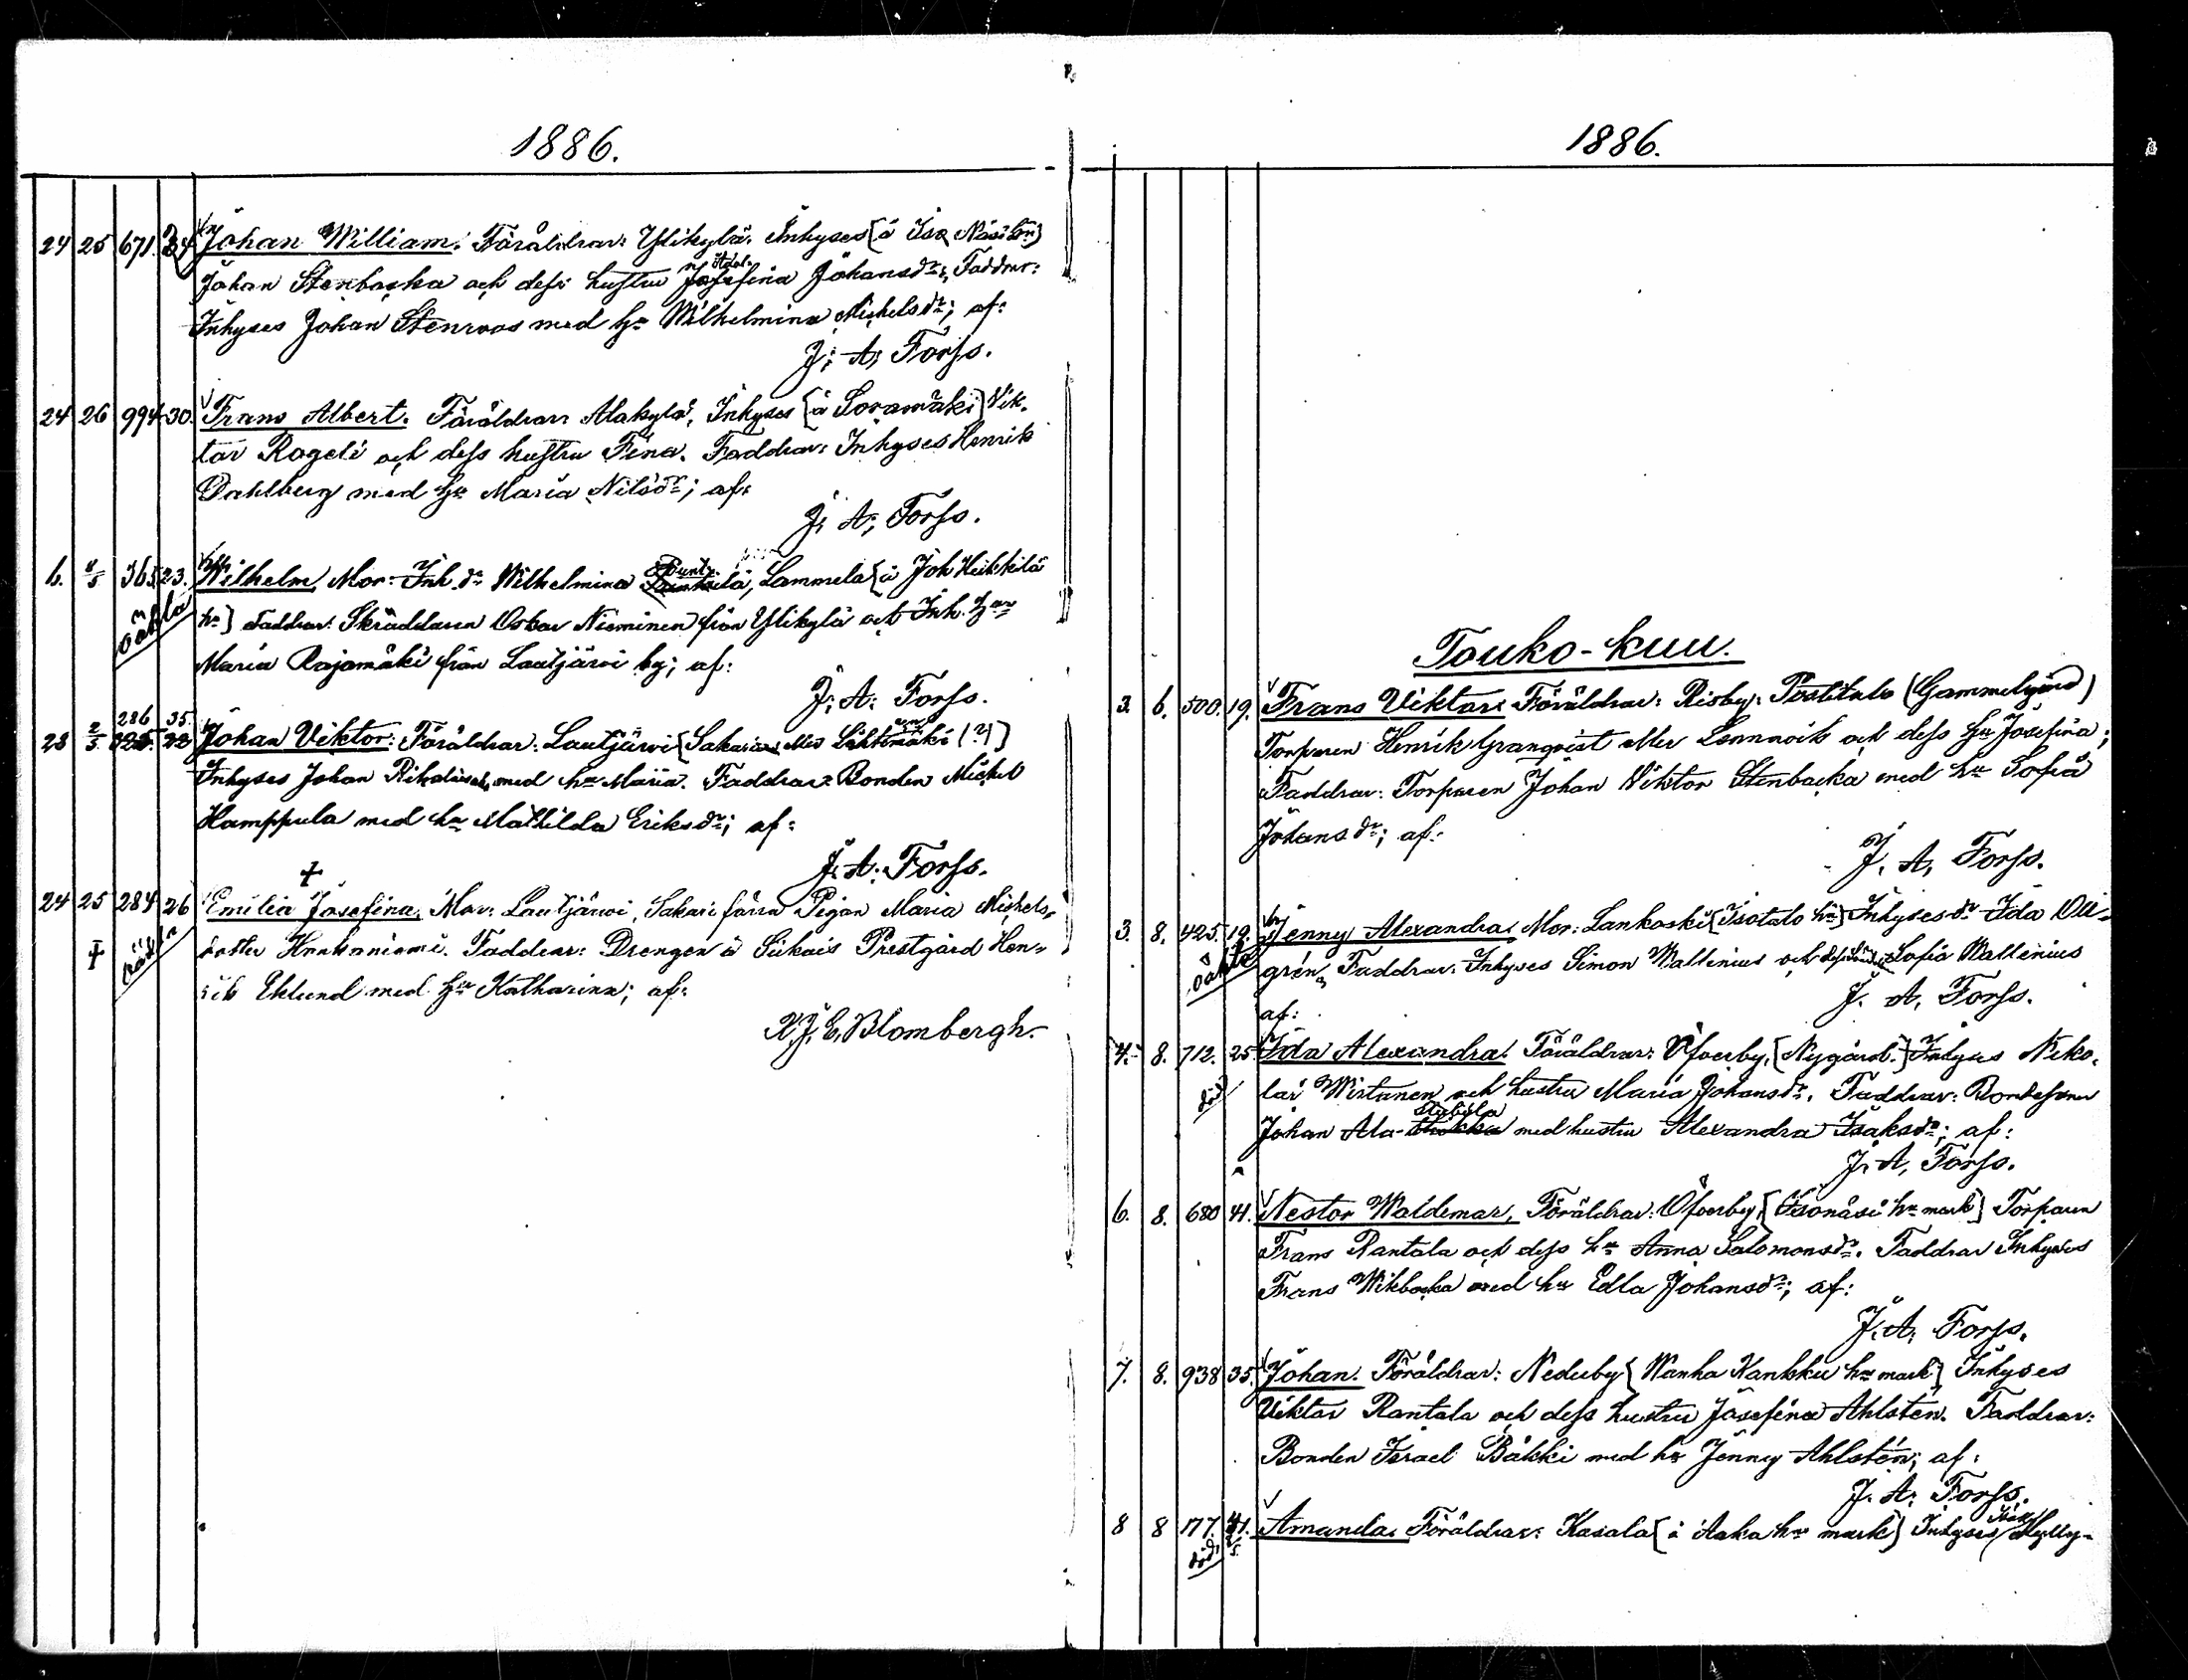 1886.
24 25 671. 34 Johan William. Föräldrar: Ylikylä. Inhyses [å Iso Näsi hn]
Johan Stenbacka och dess hustru Josefina Johansdr; Faddrar:
Inhyses Johan Stenroos med hu Wilhelmina Michelsdr; af:
J. A. Forss.
24 26 994 30. Frans Albert. Föräldrar: Alakylä, Inhyses [å Soramäki] Vik-
tor Rogeli och dess hustru Fina. Faddrar: Inhyses Henrik
Dahlberg med hu Maria Nilsdr; af:
J. A. Forss.
6. 8/5 365 23. Wilhelm, Mor: Inh. dr Wilhelmina Lammela [å Joh Heikkilä
oäkta hn] Faddrar: Skräddaren Oskar Nieminen från Ylikylä och Inh. hu
Maria Rajamäki från Lautjärvi by; af:
J. A. Forss.
286 35.
28 2/5 Johan Viktor: Föräldrar: Lautjärvi [Sakari eller Lähteenmäki (?)]
Inhyses Johan med hu Maria. Faddrar: Bonden Michel
Hamppula med hu Mathilda Eriksdr; af:
J. A. Forss.
24 25 284 26 Emilia Josefina. Mor: Lautjärvi, Sakari förra Pigan Maria Michels-
dotter Faddrar: Drengen å Siikais Prestgård Hen-
rik Eklund med hu Katharina; af:
K. J. E. Blombergh.
1886.
Touko-kuu.
3. 6. 500. 19. Frans Viktor: Föräldrar: Risby, (Gammelgård)
Torparen Henrik Granqvist eller Lennvik och dess hu Josefina;
Faddrar: Torparen Johan Viktor Stenbacka med hu Sofia
Johansdr; af:
J. A. Forss.
3. 8. 425. 19. Jenny Alexandra. Mor: Lankoski [Isotalo hn] Inhysesdr Ida Oll-
oäkta grén, Faddrar: Inhyses Simon Wallenius och Sofia Wallenius
af:
J. A. Forss.
4. 8. 712. 25. Ida Alexandra. Föräldrar: Öfverby, [Nygård.] Inhyses Niko-
död lai Wirtanen och hustru Maria Johansdr. Faddrar: Bondesonen
Johan Ala-Stabila med hustru Alexandra Isaksdr; af:
J. A. Forss.
6. 8. 680 41. Nestor Waldemar, Föräldrar: Öfverby, [Isonäsi hn mark] Torparen
Frans Rantala och dess hu Anna Salomonsdr. Faddrar Inhyses
Frans Wikbacka med hu Edla Johansdr; af:
J. A. Forss.
7. 8. 938 35. Johan. Föräldrar: Nederby [Wanha Kankku hn mark] Inhyses
Viktor Rantala och dess hustru Josefina Ahlstén. Faddrar:
Bonden Israel Bäkki med hu Jenny Ahlstén; af:
J. A. Forss.
8 8 177. 41. Amanda. Föräldrar: Kasala [å Aaka hn mark] Inhyses Mylly-
död